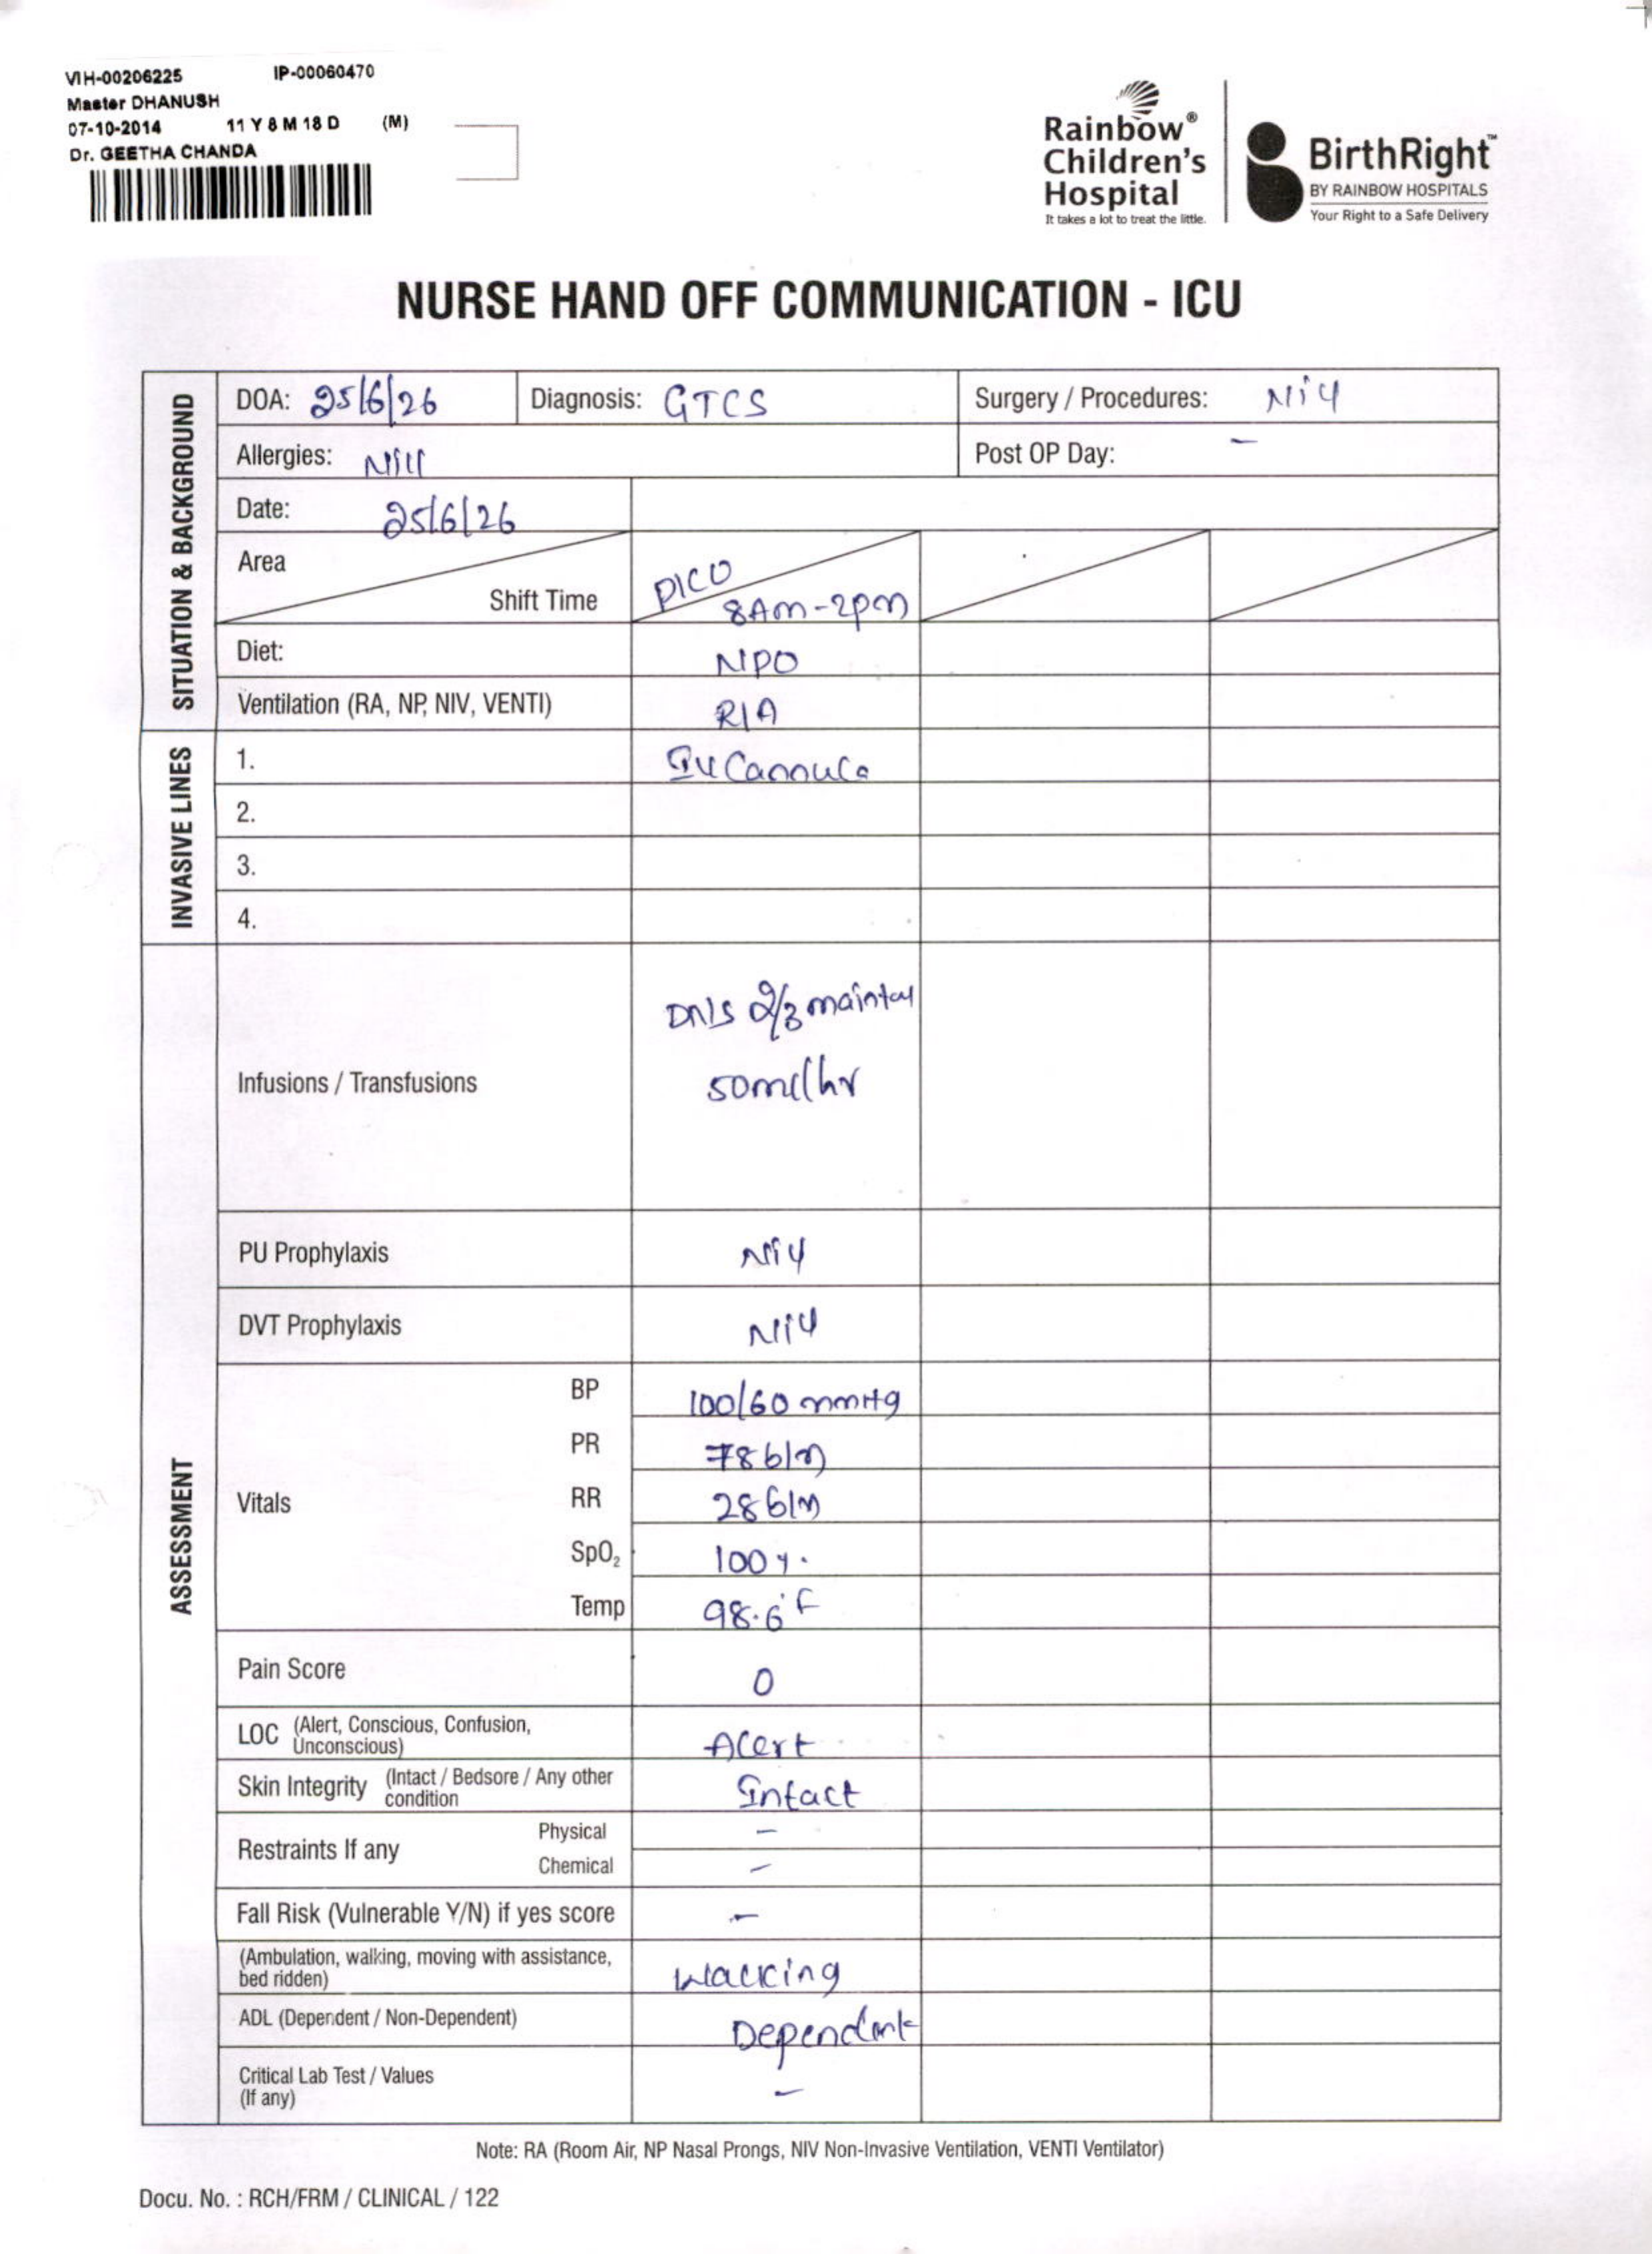 VIH-00206225 IP-00060470
Master DHANUSH
07-10-2014 11 Y 8 M 18 D (M)
Dr. GEETHA CHANDA
Rainbow®
Children's
Hospital
It takes a lot to treat the little.
BirthRight™
BY RAINBOW HOSPITALS
Your Right to a Safe Delivery
NURSE HAND OFF COMMUNICATION - ICU
SITUATION & BACKGROUND
DOA: 25/6/26 Diagnosis: GTCS Surgery / Procedures: Nill
Allergies: Nill Post OP Day: -
Date: 25/6/26
Area PICU
Shift Time 8Am-2pm
Diet: NPO
Ventilation (RA, NP, NIV, VENTI) R/A
INVASIVE LINES
1. IV Cannula
2.
3.
4.
ASSESSMENT
Infusions / Transfusions DNS 2/3 maintay
50ml/hr
PU Prophylaxis Nill
DVT Prophylaxis Nill
Vitals
BP 100/60 mmHg
PR 78b/m
RR 28b/m
SpO₂ 100%.
Temp 98.6°F
Pain Score 0
LOC (Alert, Conscious, Confusion, Unconscious) Alert
Skin Integrity (Intact / Bedsore / Any other condition Intact
Restraints If any
Physical -
Chemical -
Fall Risk (Vulnerable Y/N) if yes score -
(Ambulation, walking, moving with assistance, bed ridden) Walking
ADL (Dependent / Non-Dependent) Dependent
Critical Lab Test / Values
(If any) -
Note: RA (Room Air, NP Nasal Prongs, NIV Non-Invasive Ventilation, VENTI Ventilator)
Docu. No. : RCH/FRM / CLINICAL / 122